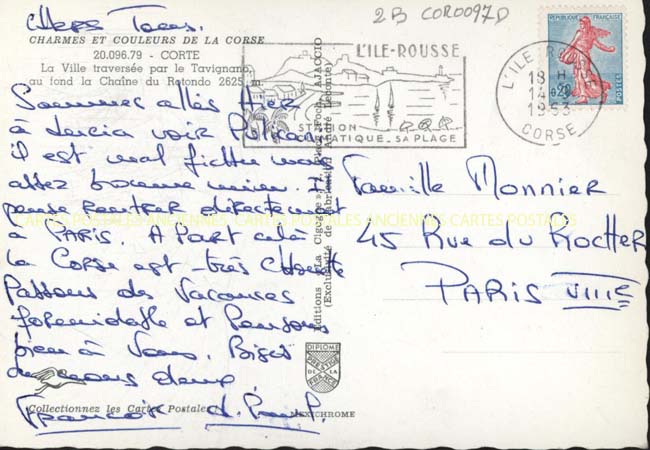 2B COR0097D
Chers Tous.
CHARMES ET COULEURS DE LA CORSE
20.096.79 - CORTE
La Ville traversée par le Tavignano,
au fond la Chaîne du Rotondo 2625 m.
L'ILE-ROUSSE
STATION
SA PLAGE
L'ILE RO
18 H
14 -
1963
CORSE
REPUBLIQUE FRANÇAISE
0,20
POSTES
Sommes allés Hier
à voir
il est mal fichu mais
assez bonne mine. Il
pense Rentrer directement
à PARIS. A Part cela
la Corse est très chouette
Passons des Vacances
formidable et Pensons
bien à Vous. Bises
de nous deux
François
Famille Monnier
45 Rue du Rocher
PARIS VIIIe
Editions "La Cigogne" AJACCIO
(Exclusivité de Fabrication André Leconte)
CARTES POSTALES ANCIENNES CARTES POSTALES ANCIENNES CARTES POSTALES
DIPLOME
PRESTIGE
DE LA
FRANCE
Collectionnez les Cartes Postales
MEXICHROME